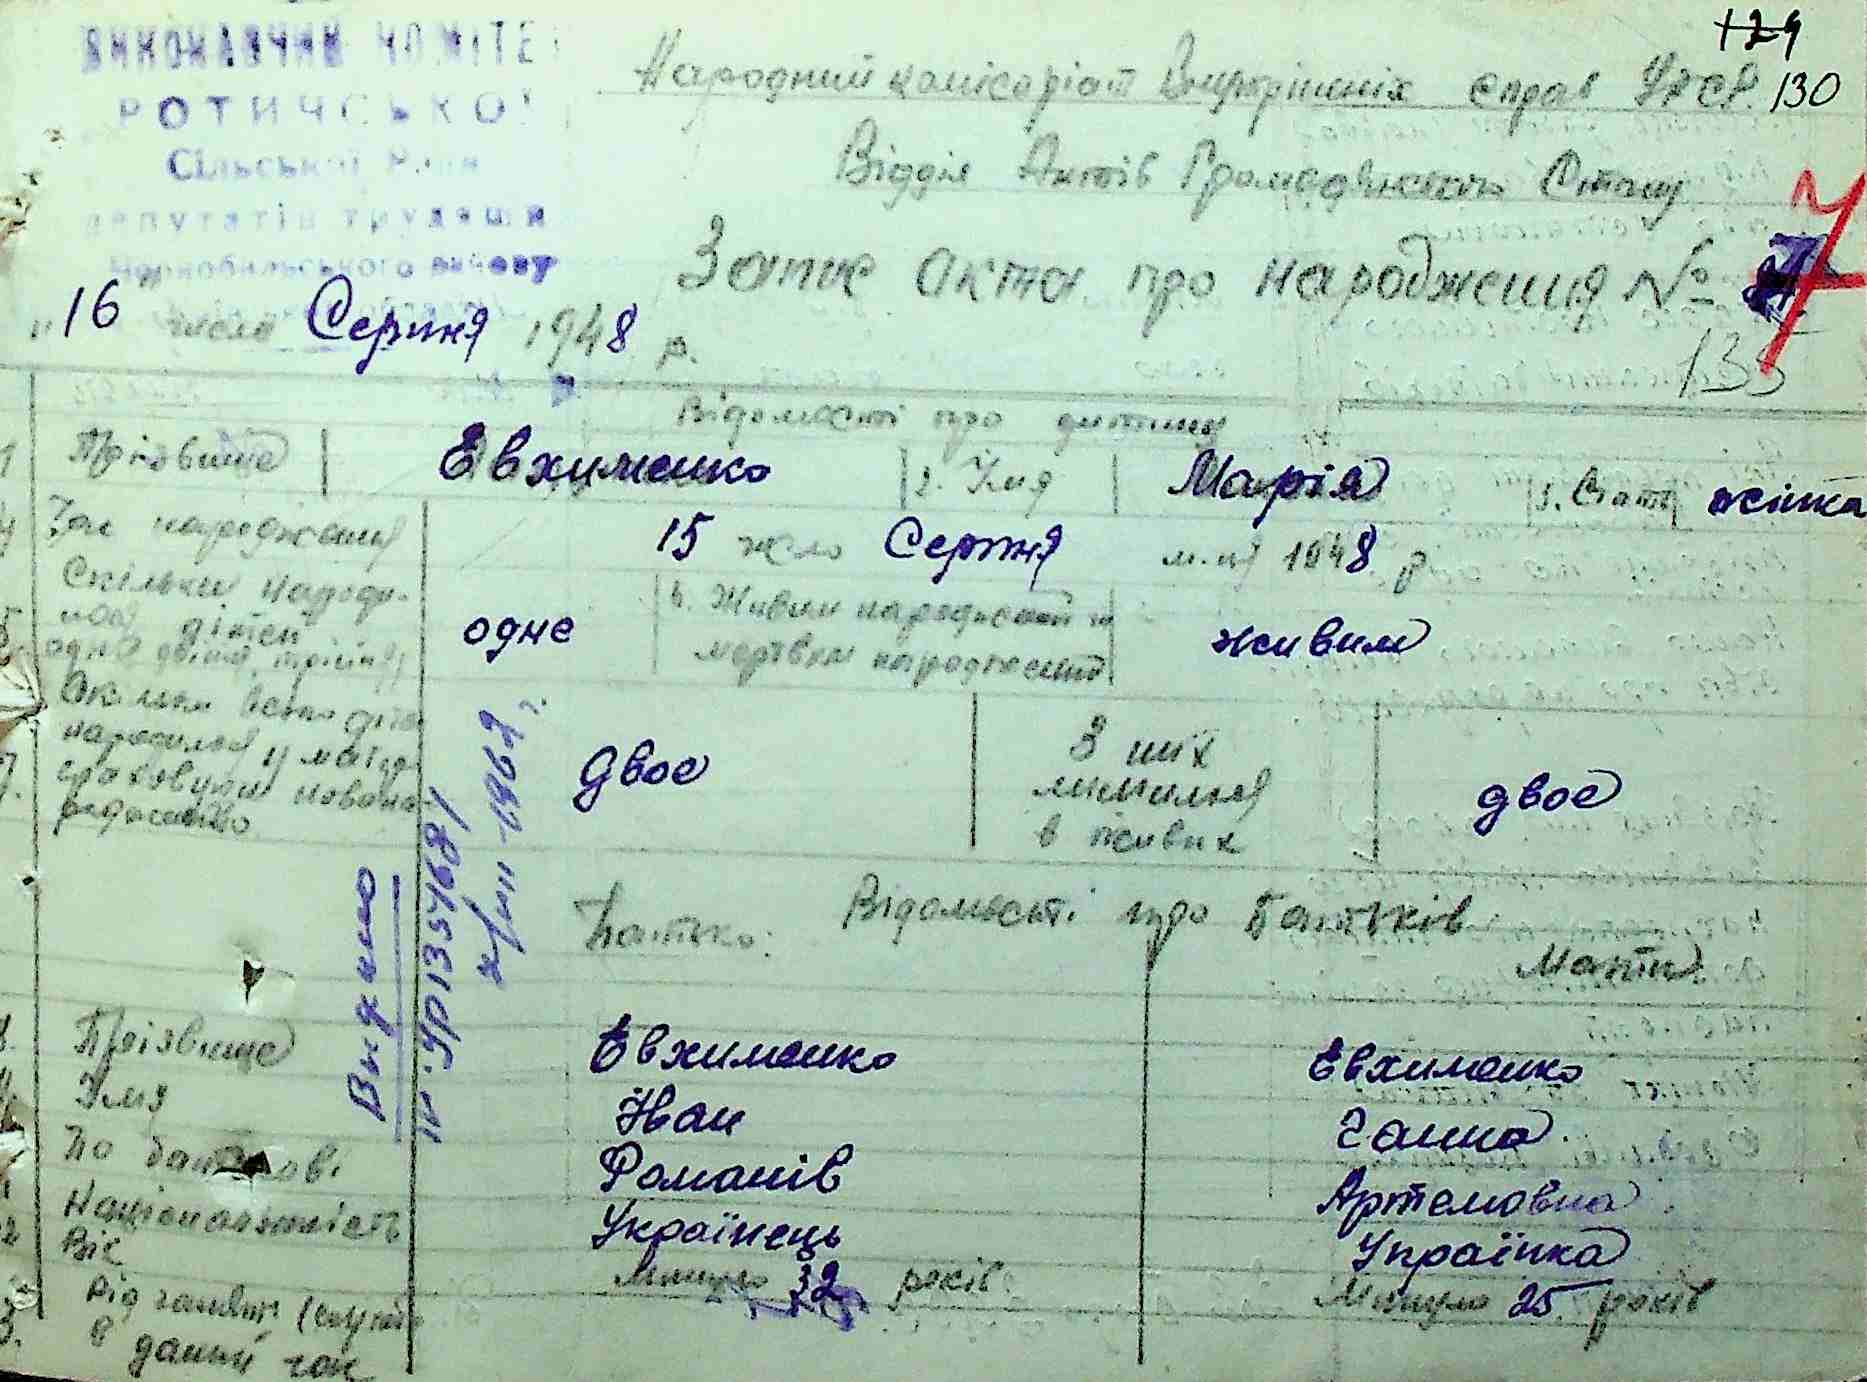 ВИКОНАВЧИЙ КОМІТЕ
РОТИЧСЬКОЇ
Сільської Ради
депутатів трудящих
Чорнобильського району
129
130
Народний комісаріат Внутрішніх справ УРСР
Відділ Актів Громадянського Стану
Запис акта про народження № 7
135
"16" числа Серпня 1948 р.
Відомості про дитину
1 Прізвище Евхименко 2. Імя Марія 3. Стать жінка
4 Час народження 15 число Серпня м-ця 1948 р
5 Скільки народи-
лось дітей
одна двійня, трійня одне 6. Живим народжений чи
мертвим народжений живим
7. Скільки всього дітей
народилося у матері
враховуючи новона-
роджено двое З них
лишилися
в живих двое
Видано
УР 135468
1962 г.
Відомості про батьків
Батько: Мати
8. Прізвище Евхименко Евхименко
9. Імя Іван Ганна
По батькові Романів Артемовна
Національність Українець Українка
12 Вік Минуло 32 років. Минуло 25 років
13. Рід занять (служби
в даний час